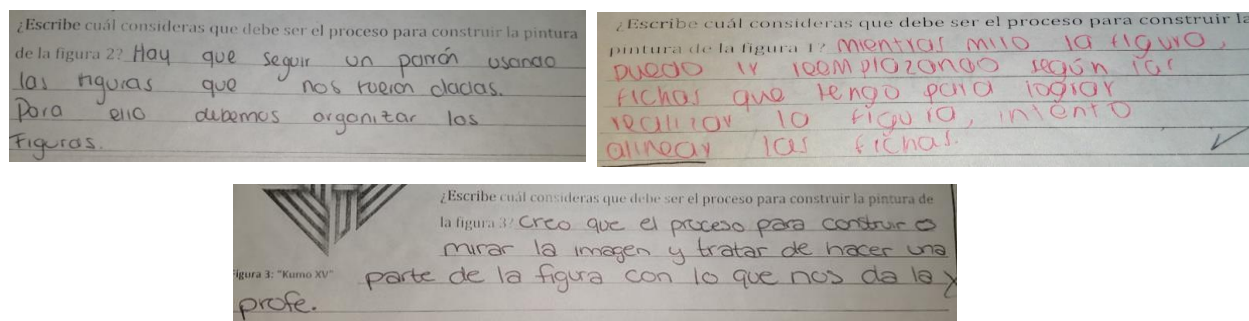 ¿Escribe cuál consideras que debe ser el proceso para construir la pintura
de la figura 2? Hay que seguir un patrón usando
las figuras que nos fueron dadas.
Para ello debemos organizar las
Figuras.
¿Escribe cuál consideras que debe ser el proceso para construir la
pintura de la figura 1? mientras miro la figura,
puedo ir reemplazando según las
fichas que tengo para lograr
realizar la figura, intento
alinear las fichas.
¿Escribe cuál consideras que debe ser el proceso para construir la pintura de
la figura 3? Creo que el proceso para construir es
mirar la imagen y tratar de hacer una
Figura 3: "Kumo XV" parte de la figura con lo que nos da la
profe.